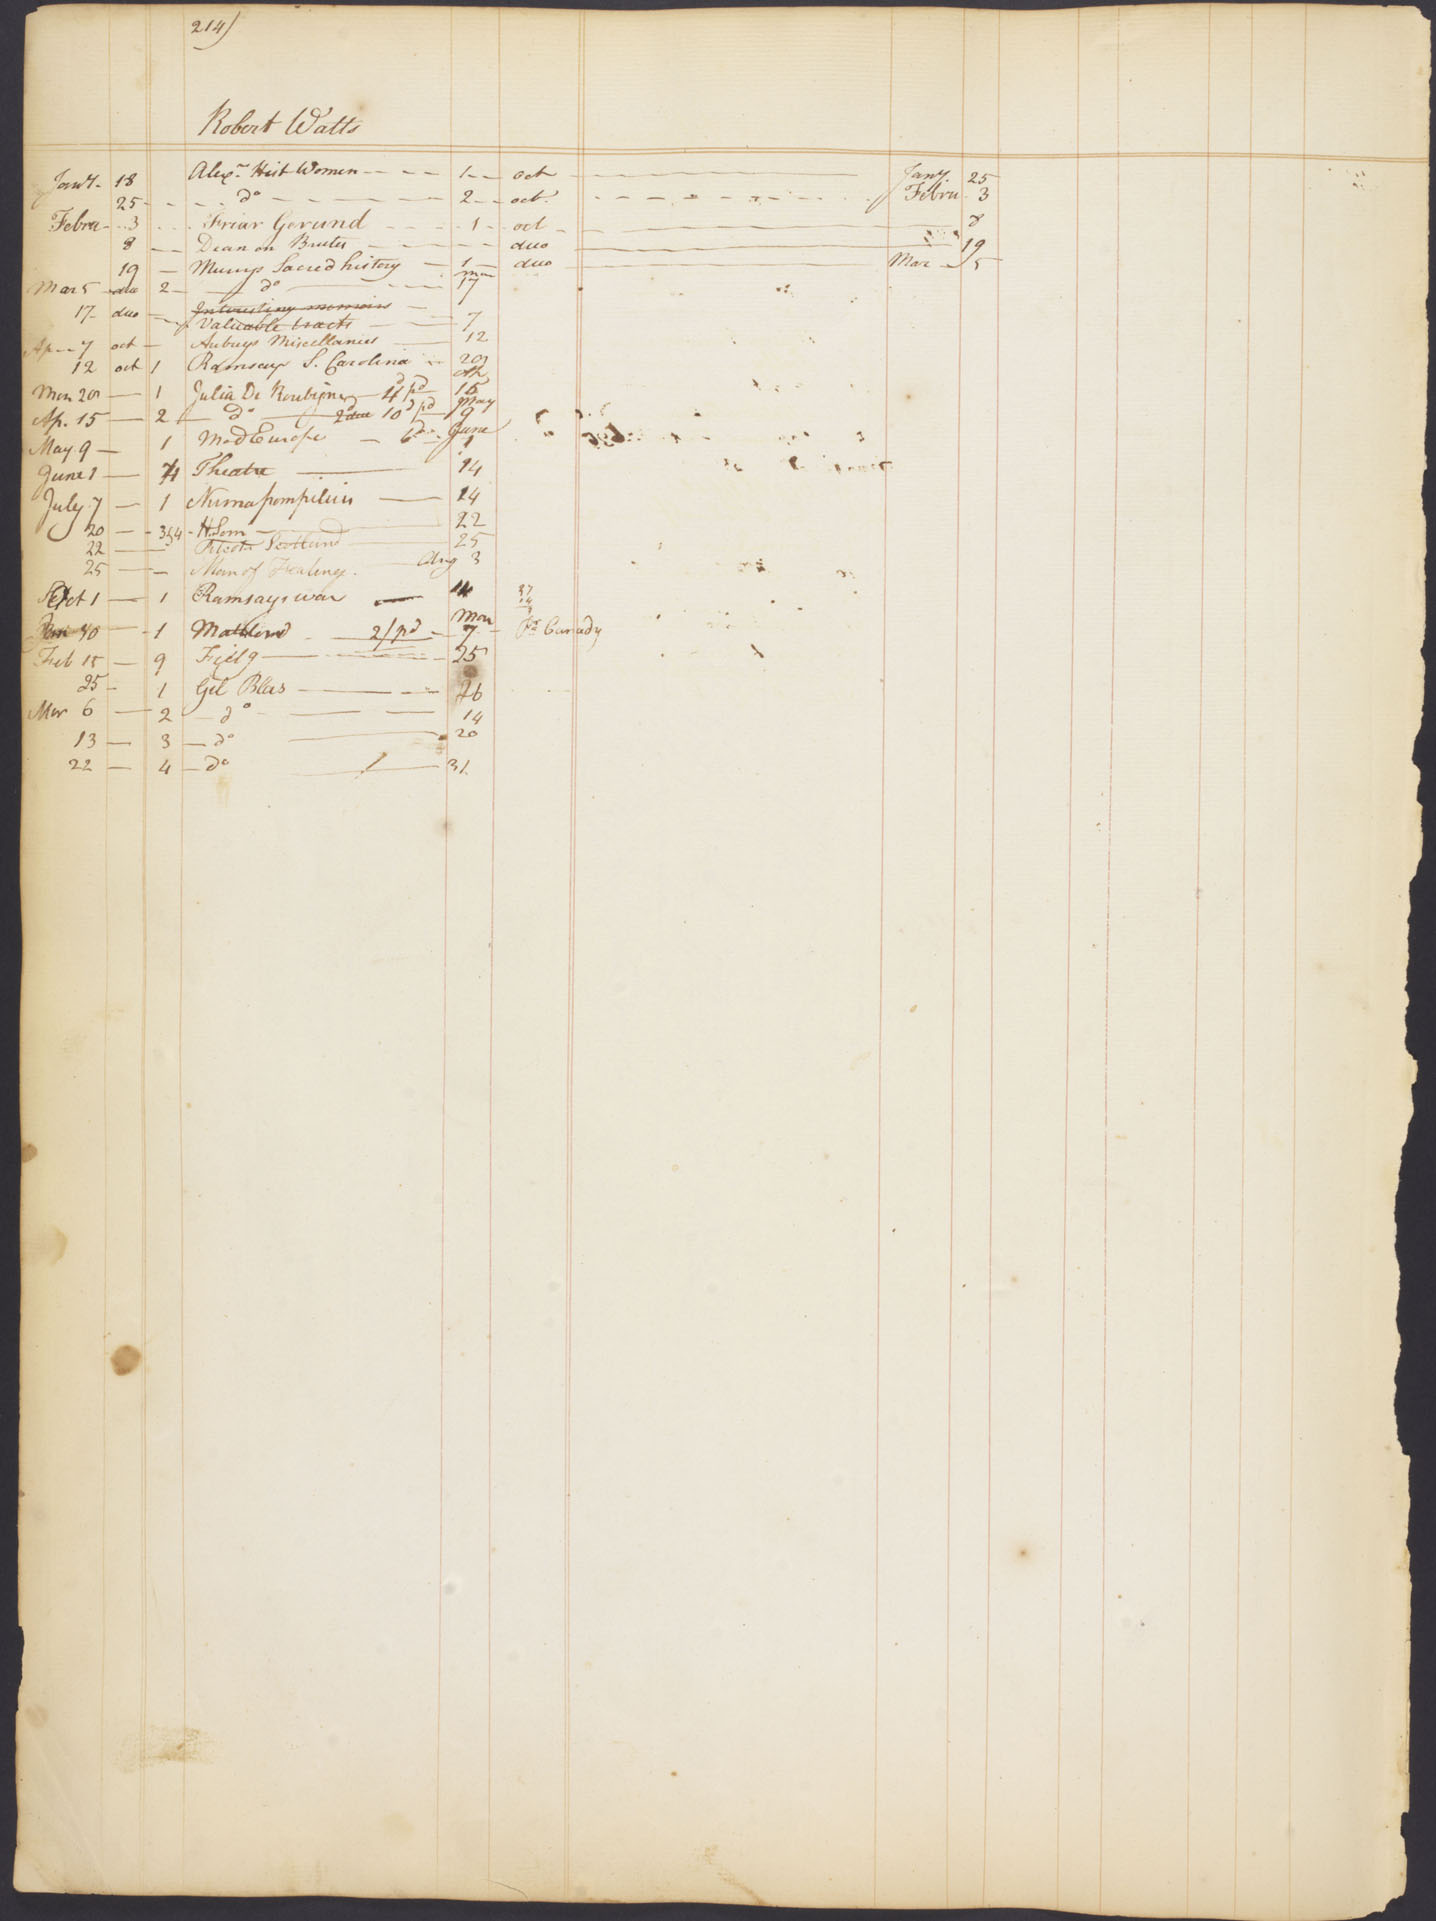 214)
Robert Watts
Jany. 18 Alexr Hist Women 1 oct Jany. 25
25 do 2 oct. Febru. 3
Febru. 3 Friar Gerund 1 oct 8
8 Dean on Brutes duo 19
19 Murrys Sacred history 1 duo Mar 5
Mar 5 duo 2 do mar 17
17 duo Interesting memoirs
Valuable tracts 7
Ap. 7 oct Aubrys Miscellanies 12
12 oct 1 Ramsays S. Carolina 20
Mon 20 1 Julia De Roubigne 4d pd 15
Ap. 15 2 do 2 due 10d pd May 9
May 9 1 Mod Europe 6d June 1
June 1 Theatre 14
July 7 1 Numa pompilius 14
20 3&4 H Tom 22
22 Scotland 25
25 Man of Fealing Aug 3
Oct 1 1 Ramsays war 14
10 1 2/pd Mar 7 pr Canady
Feb 15 9 Fieldg 25
25 1 Gil Blas 26
Mar 6 2 do 14
13 3 do 20
22 4 do 1 31.